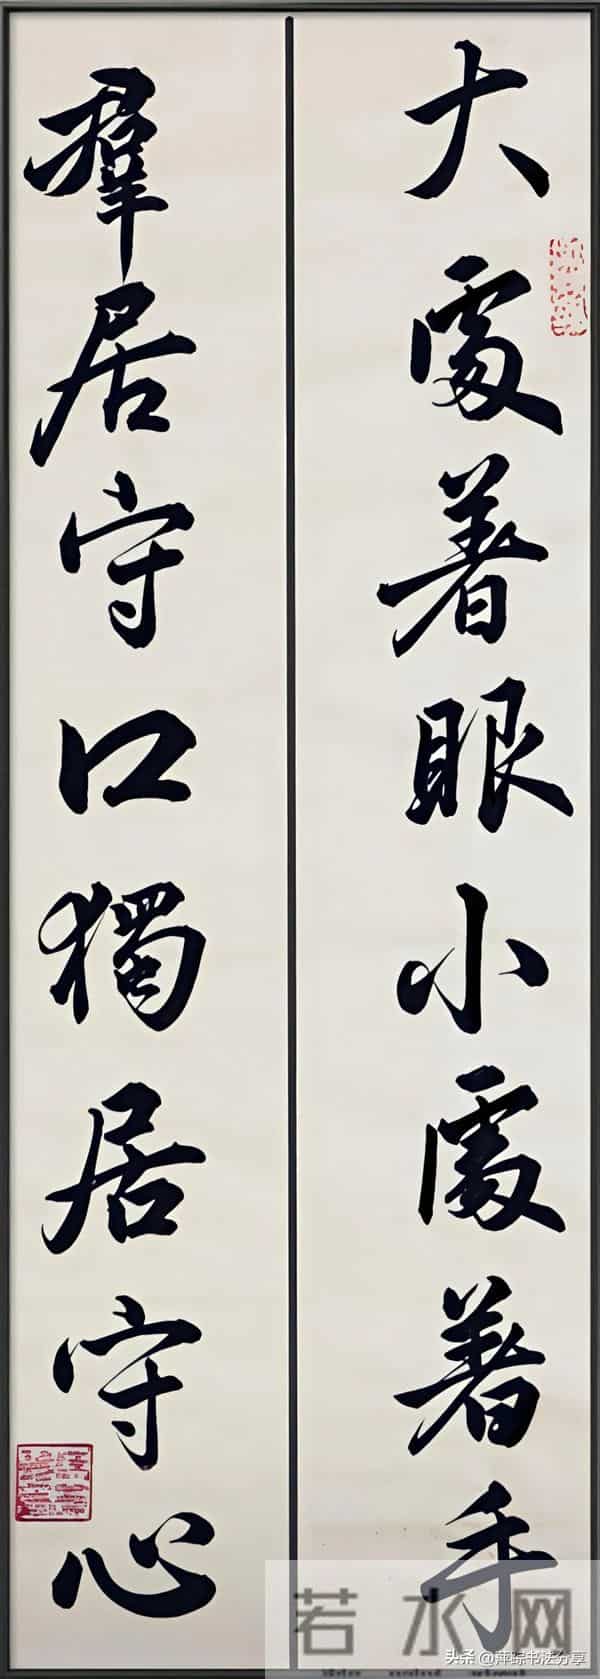 大處著眼小處著手
羣居守口獨居守心
若水网
头条@萍踪书法分享